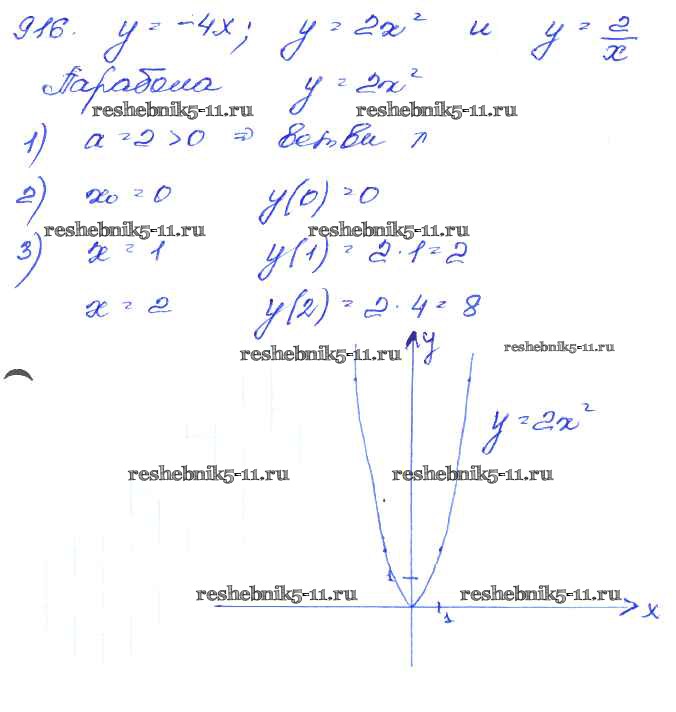 916. y = -4x; y = 2x² и y = 2/x
Парабола y = 2x²
reshebnik5-11.ru reshebnik5-11.ru
1) a = 2 > 0 ⇒ ветви ↑
2) x₀ = 0 y(0) = 0
reshebnik5-11.ru reshebnik5-11.ru
3) x = 1 y(1) = 2·1 = 2
x = 2 y(2) = 2·4 = 8
reshebnik5-11.ru y reshebnik5-11.ru
y = 2x²
reshebnik5-11.ru reshebnik5-11.ru
1
reshebnik5-11.ru reshebnik5-11.ru
1 x